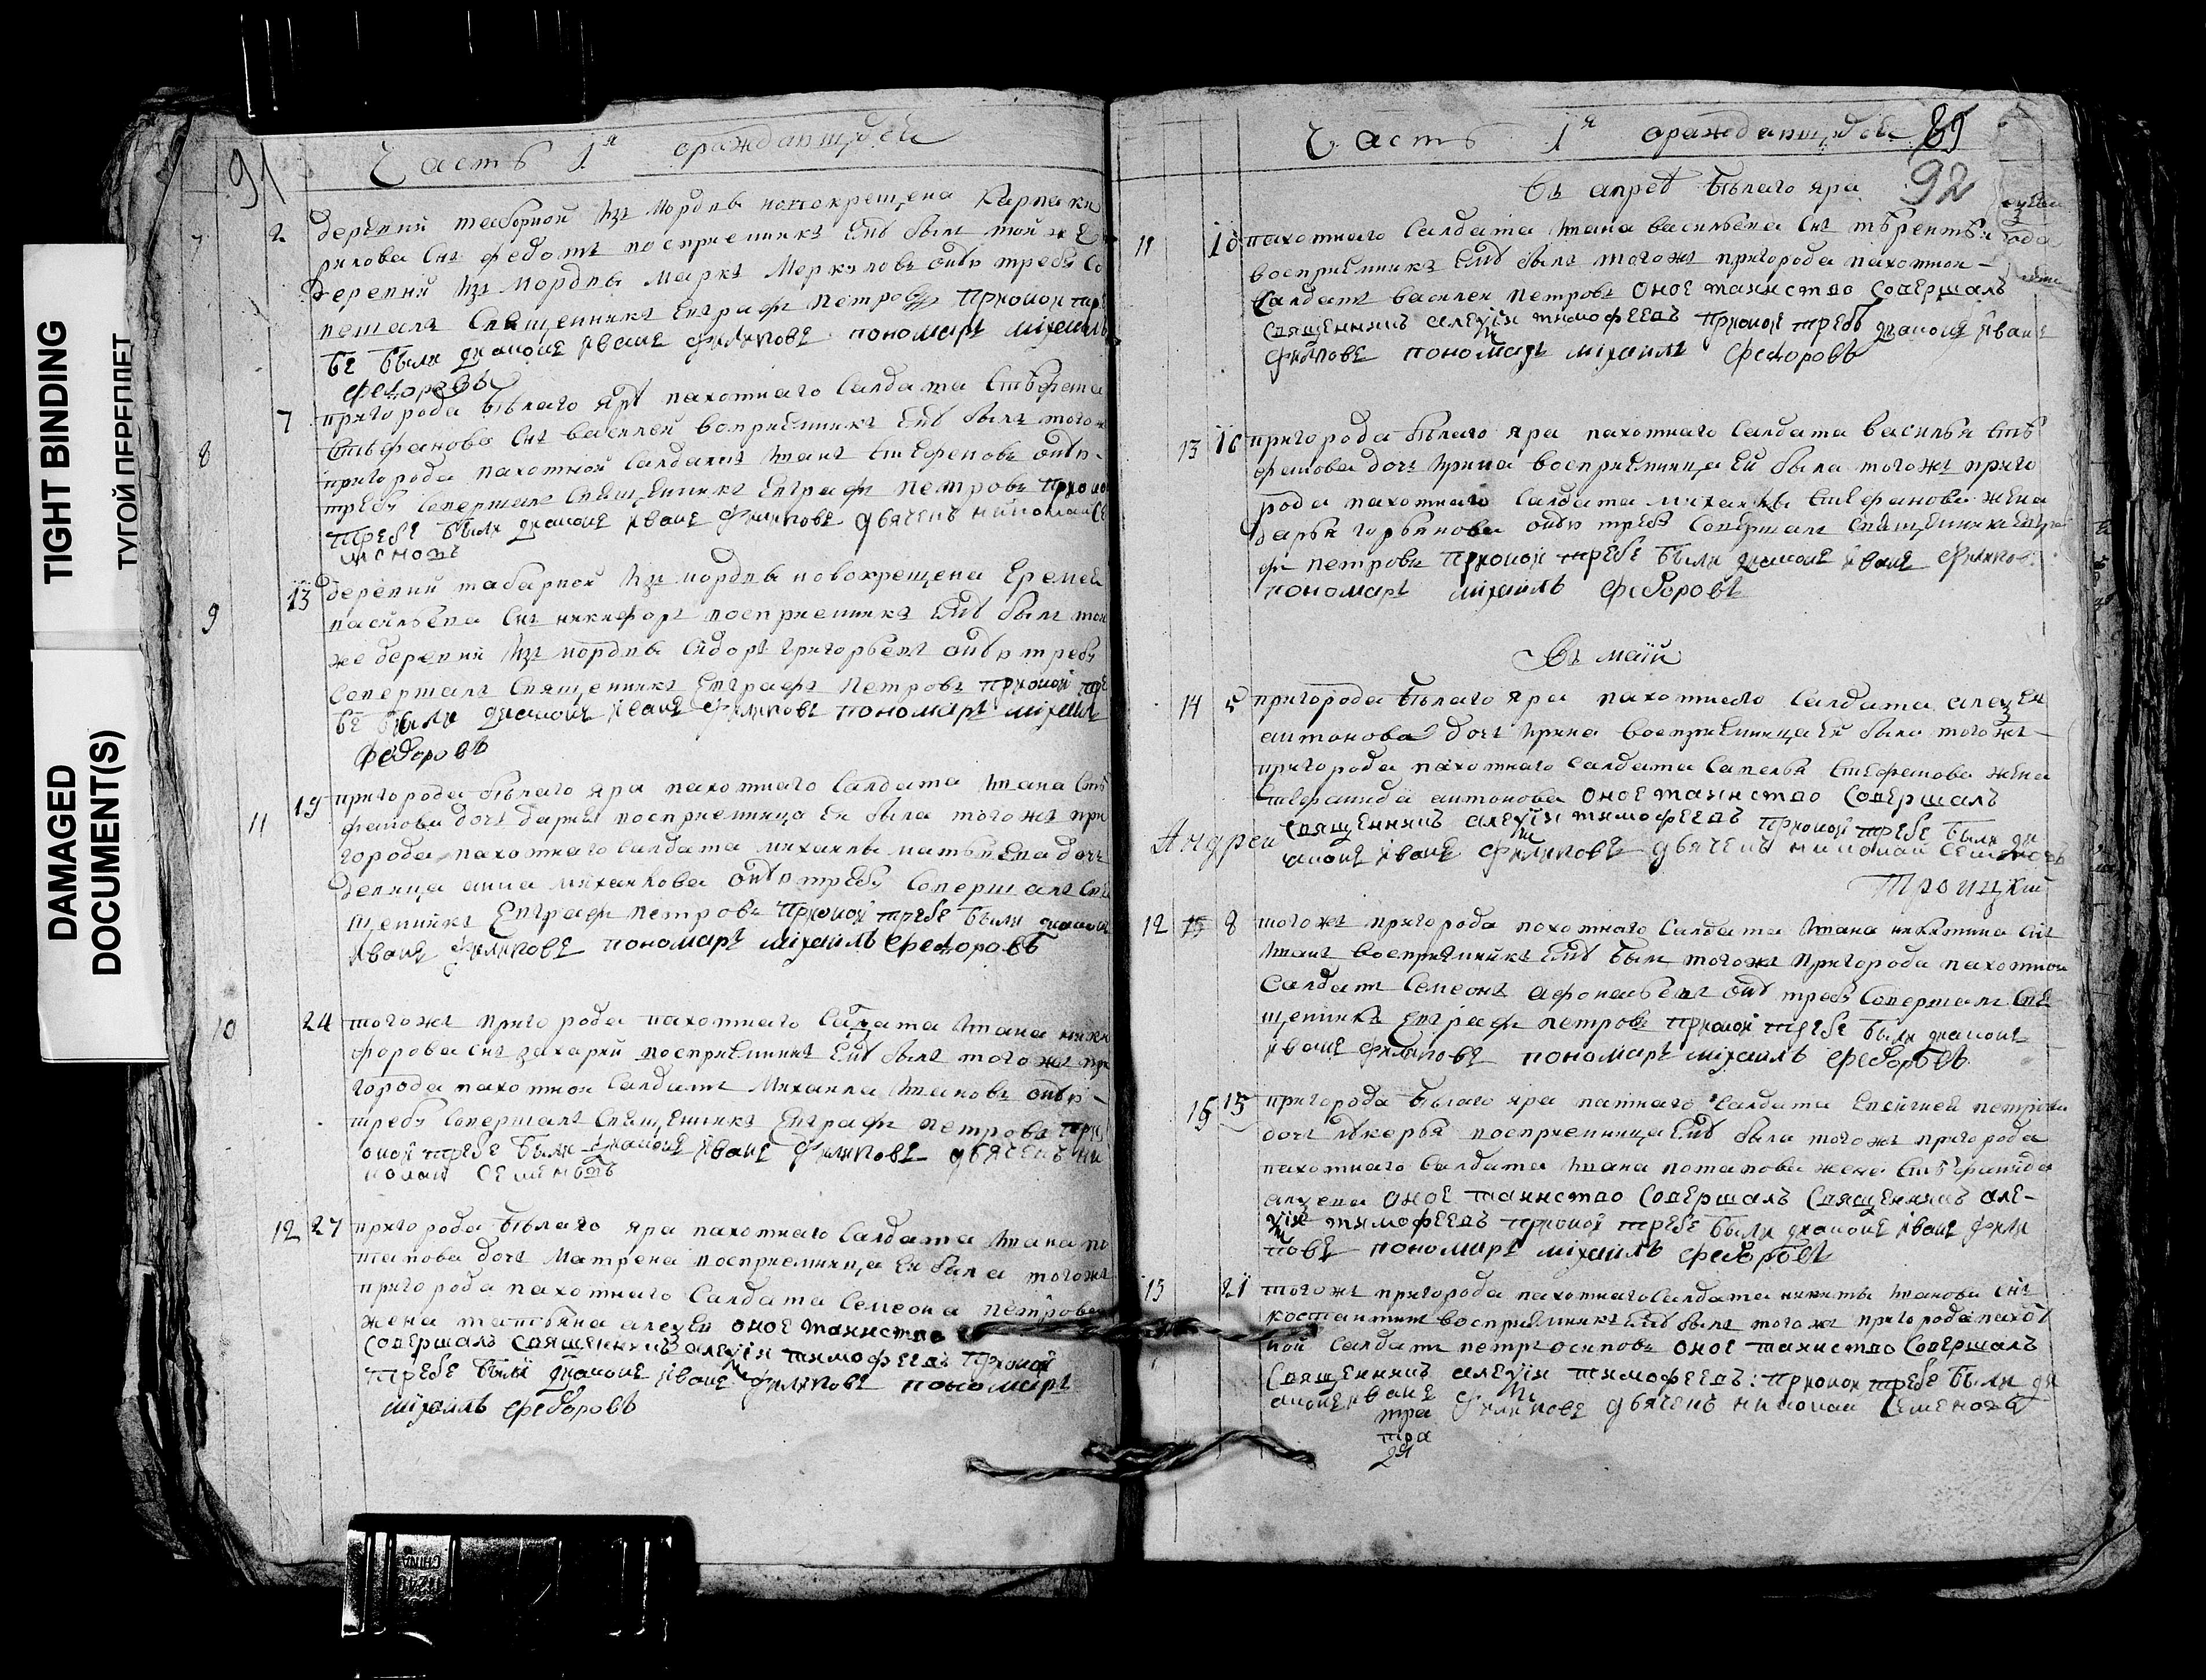 TIGHT BINDING
ТУГОЙ ПЕРЕПЛЕТ
DAMAGED
DOCUMENT(S)
91
Часть 1я ораждающихся
7 2 деревни таборной из мордвы новокрещена
сиъ федотъ восприемникъ ему былъ той же
деревни из мордвы маркъ Меркуловъ оную требу со
вершалъ Священникъ Евграфъ петровъ прионой тре
бе были диаконе иване филипове пономарь михаилъ
федоровъ
8 7 пригорода белаго яра пахотнаго Салдата
стефанова снъ василей восприемникъ ему былъ того ж
пригорода пахотной салдатъ иванъ стефановъ оную
требу совершалъ Священникъ Евграфъ петровъ прионой
требе были диаконе иване филипове дьячекъ николай се
меновъ
9 13 деревни табарной из мордвы новокрещена Еремея
васильева снъ никифоръ восприемникъ ему былъ той
же деревни из мордвы сидоръ григорьевъ оную требу
совершалъ Священникъ Евграфъ Петровъ прионой тре
бе были диаконе иване филипове пономарь михаилъ
федоровъ
11 19 пригорода белаго яра пахотнаго Салдата ивана сте
фанова дочь дарья восприемница ей была того жъ при
города пахотнаго салдата михаилы матвеева дочь
девица анна михаилова оную требу совершалъ Свя
щенникъ Евграфъ петровъ прионой требе были диаконе
иване филипове пономарь михаилъ федоровъ
10 24 того жъ пригорода пахотнаго Салдата ивана ники
форова снъ захарий восприемникъ ему былъ того жъ при
города пахотной Салдатъ Михаила ивановъ оную
требу совершалъ Священникъ Евграфъ петровъ при
оной требе были диаконе иване филипове дьячекъ ни
колай семеновъ
12 27 пригорода белаго яра пахотнаго Салдата ивана по
тапова дочь Матрена восприемница ей была того жъ
пригорода пахотнаго Салдата Семеона петрова
жена татьяна оное таинство
совершалъ Священникъ алеѯiи тимофеевъ прионой
требе были диаконе иване филипове пономарь
михаилъ федоровъ
Часть 1я ораждающихся 89
92
Въ апреле белаго яра
11 10 пахотнаго Салдата ивана васильева снъ терентей
восприемникъ ему былъ того жъ пригорода пахотной
Салдатъ василей петровъ оное таинство Совершалъ
Священникъ алеѯiи тимофеевъ прионой требе диаконе иване
филипове пономарь михаилъ федоровъ
13 16 пригорода белаго яра пахотнаго Салдата василья сте
фанова дочь ирина восприемница ей была того жъ приго
рода пахотнаго салдата михаилы стефанова жена
дарья оную требу совершалъ Священникъ Евгра
фъ петровъ прионой требе были диаконе иване филипове
пономарь михаилъ федоровъ
Въ маiи
14 5 пригорода белаго яра пахотнаго Салдата алеѯея
антонова дочь ирина восприемница ей была того жъ
пригорода пахотнаго салдата Савелья стефанова жена
стефанида антонова оное таинство Совершалъ
Священникъ алеѯiи тимофеевъ прионой требе были ди
Андрей
аконе иване филипове дьячекъ николай семеновъ
Троицкий
12 15 8 того жъ пригорода пахотнаго Салдата ивана никитина снъ
иванъ восприемникъ ему былъ того жъ пригорода пахотной
Салдатъ Семеонъ афонасьевъ оную требу совершалъ Свя
щенникъ Евграфъ петровъ прионой требе были диаконе
иване филипове пономарь михаилъ федоровъ
16 15 пригорода белаго яра Салдата петрова
дочь восприемница ему была того жъ пригорода
пахотнаго Салдата ивана потапова жена стефанида
оное таинство Совершалъ Священникъ але
ѯiи тимофеевъ прионой требе были диаконе иване фили
пове пономарь михаилъ федоровъ
15 21 того жъ пригорода пахотнаго Салдата никиты иванова снъ
костантинъ восприемникъ ему былъ того жъ пригорода пахот
ной Салдатъ петръ осиповъ оное таинство Совершалъ
Священникъ алеѯiи тимофеевъ: прионой требе были ди
аконе иване филипове дьячекъ николай Семеновъ